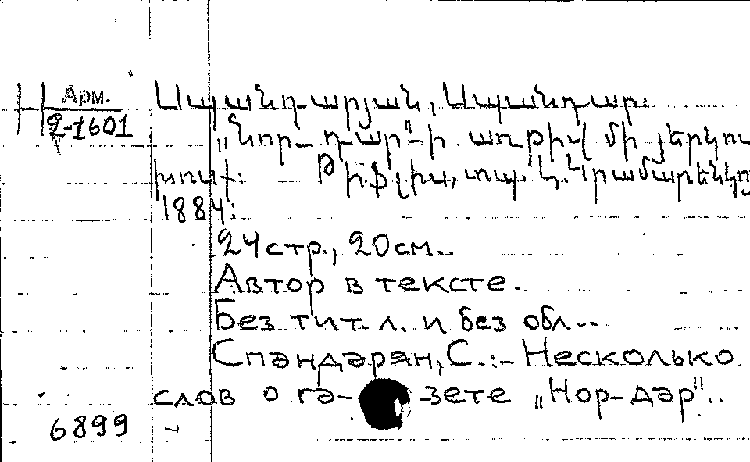 Арм.
2-1601
Սպանդարյան, Սպանդար.
„Նոր-դար"-ի առթիվ մի երկու
խոսք: Թիֆլիս, տպ. Կ.
1884:
24 стр., 20 см.
Автор в тексте.
Без тит. л. и без обл..
Спандарян, С.:- Несколько
слов о га-зете „Нор-дар"..
6899